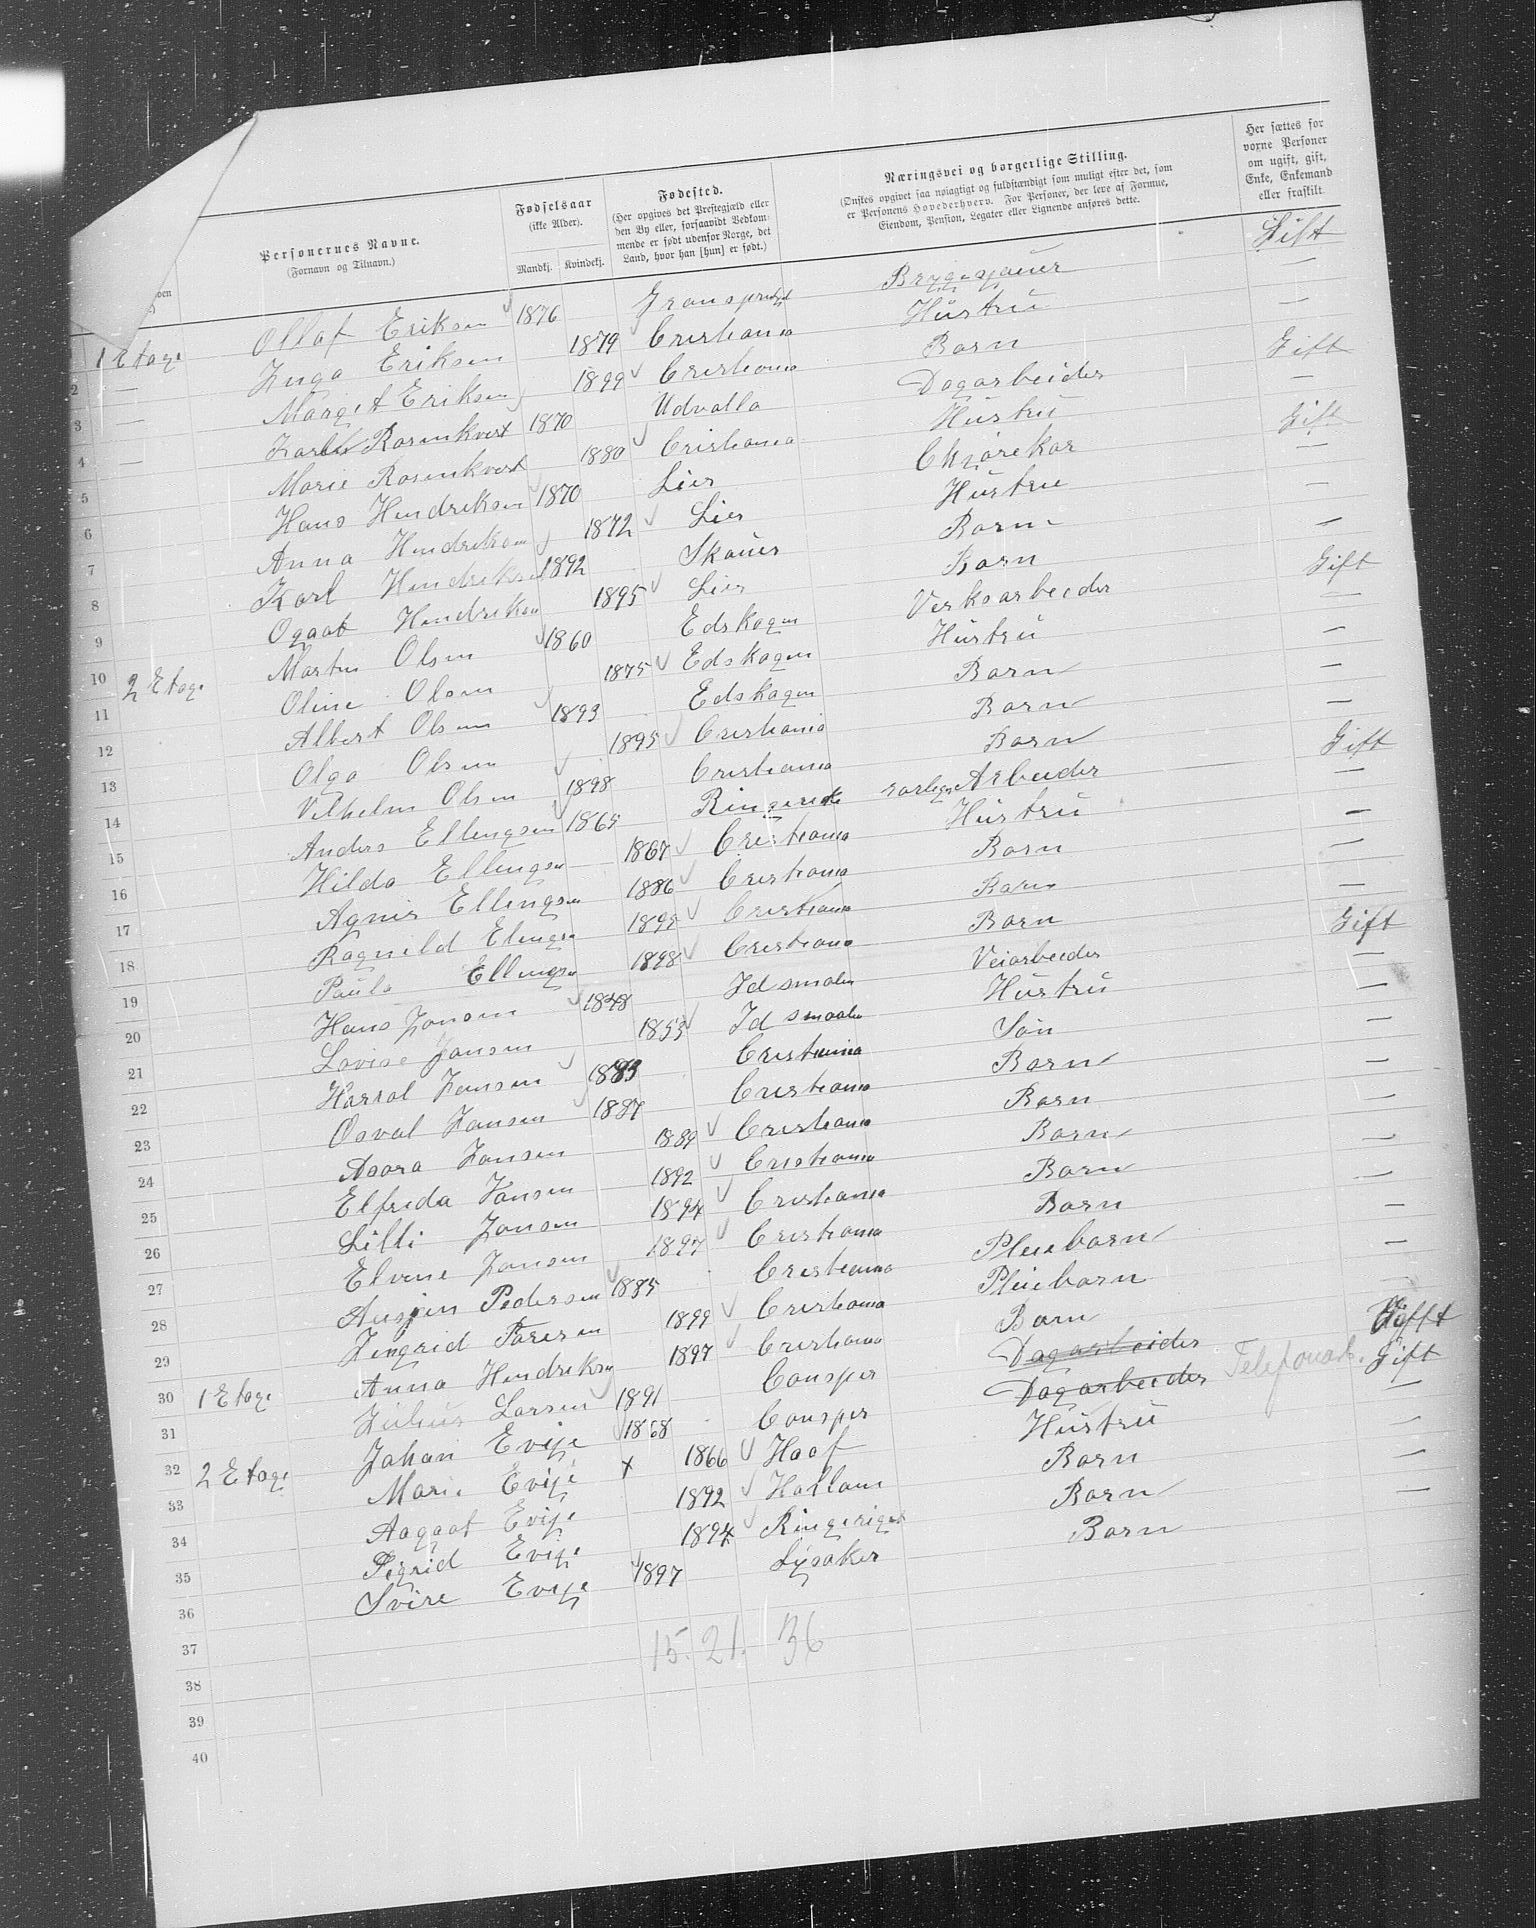 Personernes Navne.
(Fornavn og Tilnavn.)
Fødselsaar
(ikke Alder).
Mandkj. Kvindekj.
Fødested.
(Her opgives det Prestegjæld eller
den By eller, forsaavidt Vedkom-
mende er født udenfor Norge, det
Land, hvor han [hun] er født.)
Næringsvei og borgerlige Stilling.
(Ønskes opgivet saa nøiagtigt og fuldstændigt som muligt efter det, som
er Personens Hovederhverv. For Personer, der leve af Formue,
Eiendom, Pension, Legater eller Lignende anføres dette.
Her sættes for
voxne Personer
om ugift, gift,
Enke, Enkemand
eller fraskilt.
1 Etage Ollaf Eriksen 1876 Gift
2 — Inga Eriksen 1879 Cristiania Hustru —
3 — Margit Eriksen 1899 Cristiania Barn —
4 — Rosenkvest 1870 Udvalla Dagarbeider Gift
5 Marie Rosenkvest 1880 Cristiania Hustru —
6 Hans Hendriksen 1870 Lier Gift
7 Anna Hendriksen 1872 Lier Hustru —
8 Karl Hendriksen 1892 Skauer Barn —
9 Ogaat Hendriksen 1895 Lier Barn —
10 2 Etage Martin Olsen 1860 Edskogen Verksarbeider Gift
11 Oline Olsen 1875 Edskogen Hustru —
12 Albert Olsen 1893 Edskogen Barn —
13 Olga Olsen 1895 Cristiania Barn —
14 Vilhelm Olsen 1898 Cristiania Barn —
15 Anders Ellingsen 1865 Arbeider Gift
16 Hilda Ellingsen 1867 Cristiania Hustru —
17 Agnis Ellingsen 1886 Cristiania Barn —
18 Ragnild Elingsen Cristiania Barn —
19 Paula Ellingsen 1898 Cristiania Barn —
20 Hans Jansen 1848 Id smalen Veiarbeider Gift
21 Lovise Jansen 1853 Id smaalen Hustru —
22 Harral Jansen 1883 Cristiania Søn —
23 Osval Jansen 1887 Cristiania Barn —
24 Asora Jansen 1889 Cristiania Barn —
25 Elfrida Jansen 1892 Cristiania Barn —
26 Lilli Jansen 1894 Cristiania Barn —
27 Elvine Jansen 1897 Cristiania Barn —
28 Pedersen 1885 Cristiania Pleiebarn —
29 Ingrid 1899 Cristiania Pleiebarn —
30 1 Etage Anna Hendriksen 1897 Cristiania Barn —
31 Julius Larsen 1891 Consper Dagarbeider
32 2 Etage Johan Evije 1868 Consper Dagarbeider Telefonarb. Gift
33 Marie Evije x 1866 Haaf Hustru —
34 Aagaat Evije 1892 Barn —
35 Sigrid Evije 1894 Ringeriget Barn —
36 Evije 1897 Lysaker Barn —
37
38 15. 21. 36
39
40